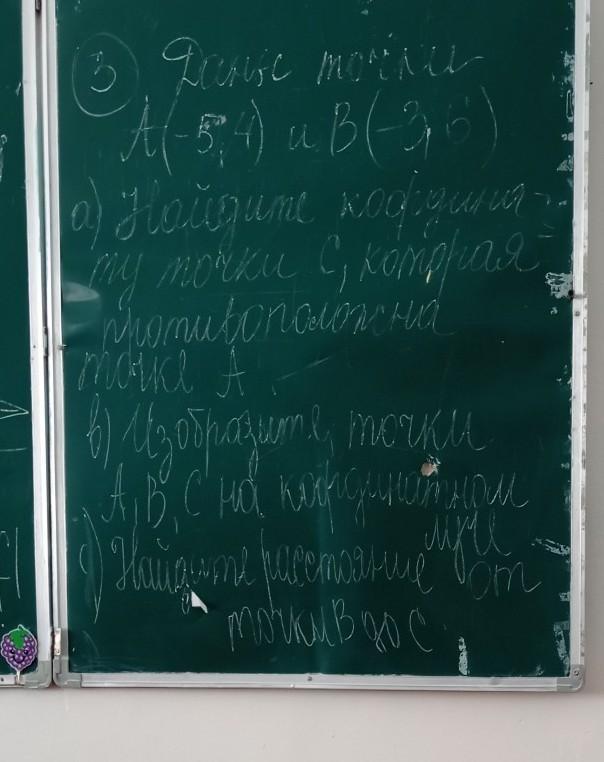 3 Даны точки
А(-5,4) и В(-3,6)
а) Найдите координа-
ту точки С, которая
противоположна
точке А.
в) Изобразите точки
А, В, С на координатном
луче
с) Найдите расстояние от
точки В до С